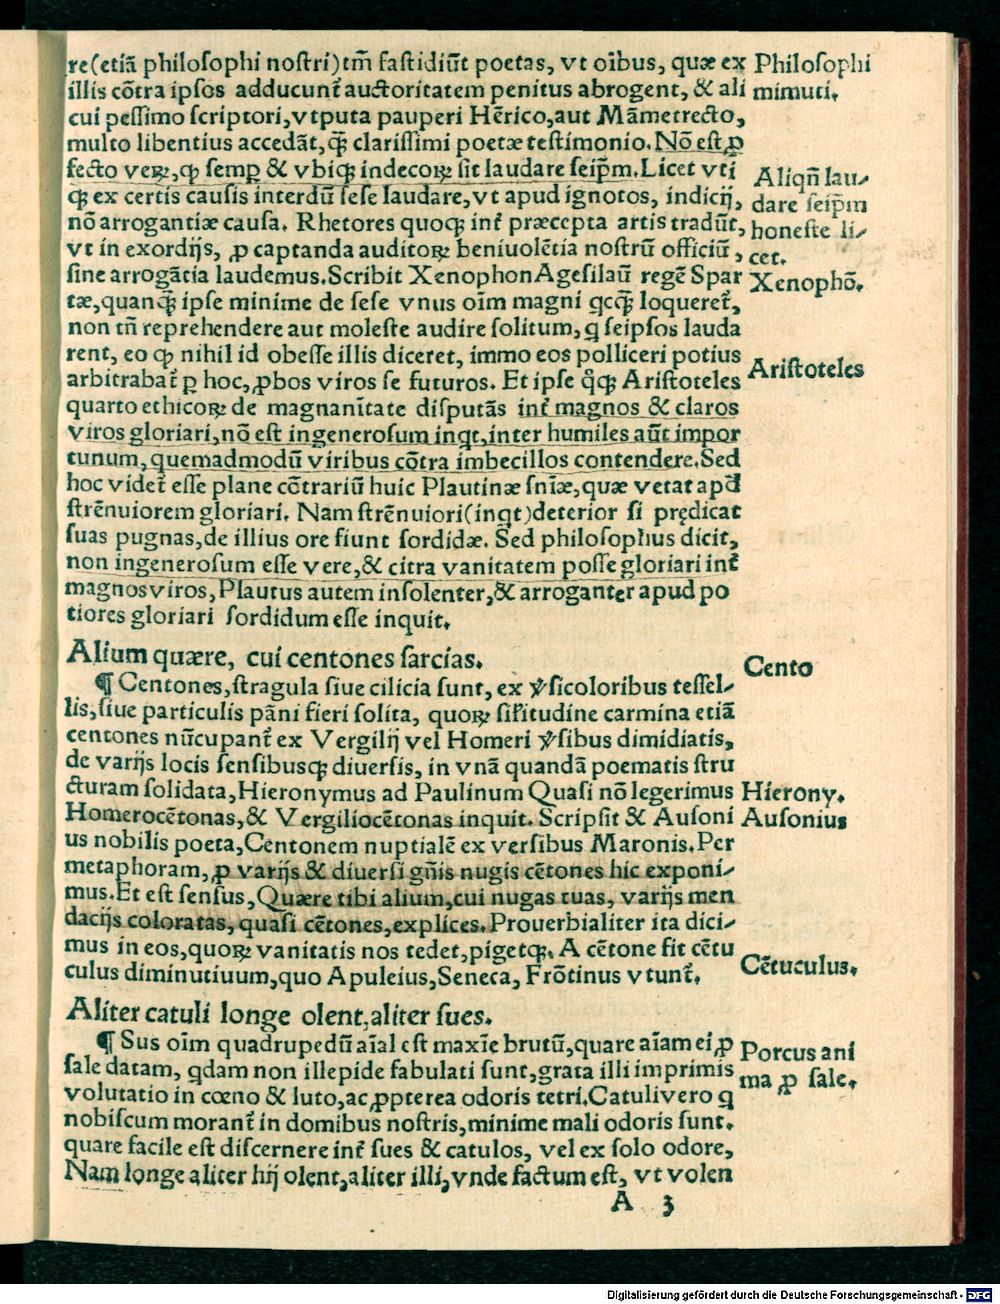 re(etiã philosophi nostri)tm̃ fastidiũt poetas, vt oĩbus, quæ ex
illis cõtra ipsos adducunt᷑ auctoritatem penitus abrogent, & ali
cui pessimo scriptori, vtputa pauperi Hẽrico, aut Mãmetrecto,
multo libentius accedãt, q̃ꝫ clarissimi poetæ testimonio. Nõ est, ꝓ
fecto veꝝ, ꝙ semꝑ & vbiqꝫ indecoꝝ sit laudare seip̃m. Licet vti
qꝫ ex certis causis interdũ sese laudare, vt apud ignotos, indicij,
nõ arrogantiæ causa. Rhetores quoqꝫ int᷑ præcepta artis tradũt,
vt in exordijs, ꝓ captanda auditoꝝ beniuolẽtia nostrũ officiũ,
sine arrogãtia laudemus. Scribit Xenophon Agesilaũ regẽ Spar
tæ, quanq̃ꝫ ipse minime de sese vnus oĩm magni qcq̃ꝫ loqueret᷑,
non tñ reprehendere aut moleste audire solitum, q seipsos lauda
rent, eo ꝙ nihil id obesse illis diceret, immo eos polliceri potius
arbitrabat᷑ ꝑ hoc, ꝓbos viros se futuros. Et ipse q̃qꝫ Aristoteles
quarto ethicoꝝ de magnanĩtate disputãs int᷑ magnos & claros
viros gloriari, nõ est ingenerosum inqt, inter humiles aũt impor
tunum, quemadmodũ viribus cõtra imbecillos contendere. Sed
hoc videt᷑ esse plane cõtrariũ huic Plautinæ sñiæ, quæ vetat apd̃
strẽnuiorem gloriari. Nam strẽnuiori(inqt)deterior si prędicat
suas pugnas, de illius ore fiunt sordidæ. Sed philosophus dicit,
non ingenerosum esse vere, & citra vanitatem posse gloriari int᷑
magnos viros, Plautus autem insolenter, & arroganter apud po
tiores gloriari sordidum esse inquit.
Alium quære, cui centones sarcias.
¶ Centones, stragula siue cilicia sunt, ex v̕sicoloribus tessel-
lis, siue particulis pãni fieri solita, quoꝝ sil̃itudine carmina etiã
centones nũcupant᷑ ex Vergilij vel Homeri v̕sibus dimidiatis,
de varijs locis sensibusqꝫ diuersis, in vnã quandã poematis stru
cturam solidata, Hieronymus ad Paulinum Quasi nõ legerimus
Homerocẽtonas, & Vergiliocẽtonas inquit. Scripsit & Ausoni
us nobilis poeta, Centonem nuptialẽ ex versibus Maronis. Per
metaphoram, ꝓ varijs & diuersi gñis nugis cẽtones hic exponi-
mus. Et est sensus, Quære tibi alium, cui nugas tuas, varijs men
dacijs coloratas, quasi cẽtones, explices. Prouerbialiter ita dici-
mus in eos, quoꝝ vanitatis nos tedet, pigetqꝫ. A cẽtone fit cẽtu
culus diminutiuum, quo Apuleius, Seneca, Frõtinus vtunt᷑.
Aliter catuli longe olent, aliter sues.
¶ Sus oĩm quadrupedũ aĩal est maxĩe brutũ, quare aĩam ei, ꝓ
sale datam, qdam non illepide fabulati sunt, grata illi imprimis
volutatio in cœno & luto, ac ꝓpterea odoris tetri. Catuli vero q
nobiscum morant᷑ in domibus nostris, minime mali odoris sunt.
quare facile est discernere int᷑ sues & catulos, vel ex solo odore,
Nam longe aliter hij olent, aliter illi, vnde factum est, vt volen
A 3
Philosophi
mimuti.
Aliqñ lau-
dare seip̃m
honeste li-
cet.
Xenophõ.
Aristoteles
Cento
Hierony.
Ausonius
Cẽtuculus.
Porcus ani
ma ꝓ sale.
Digitalisierung gefördert durch die Deutsche Forschungsgemeinschaft - DFG